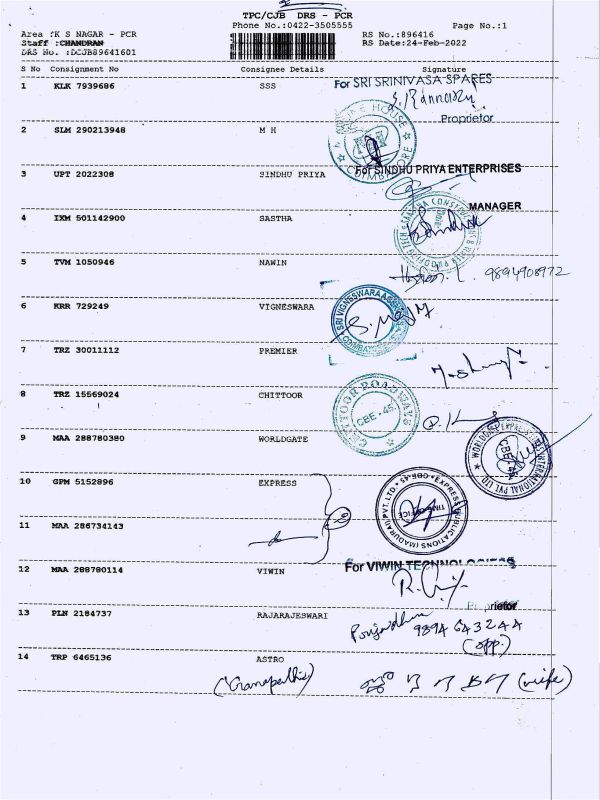 TPC/CJB DRS - PCR
Phone No.:0422-3505555 Page No.:1
Area :K S NAGAR - PCR RS No.:896416
Staff :CHANDRAN RS Date:24-Feb-2022
DRS No. :DCJB89641601
S No Consignment No Consignee Details Signature
1 KLK 7939686 SSS For SRI SRINIVASA SPARES
Proprietor
2 SLM 290213948 M H
COIMBATORE
3 UPT 2022308 SINDHU PRIYA For SINDHU PRIYA ENTERPRISES
MANAGER
4 IXM 501142900 SASTHA
5 TVM 1050946 NAWIN 9894908972
6 KRR 729249 VIGNESWARA
SRI VIGNESWARA
7 TRZ 30011112 PREMIER
8 TRZ 15569024 CHITTOOR
CHITTOOR ROADWAYS
CBE-45
9 MAA 288780380 WORLDGATE
WORLDGATE EXPRESS INTERNATIONAL PVT LTD
CBE-44
10 GPM 5152896 EXPRESS
EXPRESS PUBLICATIONS (MADURAI) PVT. LTD. CBE-45
TIME OFFICE
11 MAA 286734143
12 MAA 288780114 VIWIN For VIWIN TECHNOLOGIES
Proprietor
13 PLN 2184737 RAJARAJESWARI
9894643244
(opp.)
14 TRP 6465136 ASTRO
(Ganapathi) (wife)